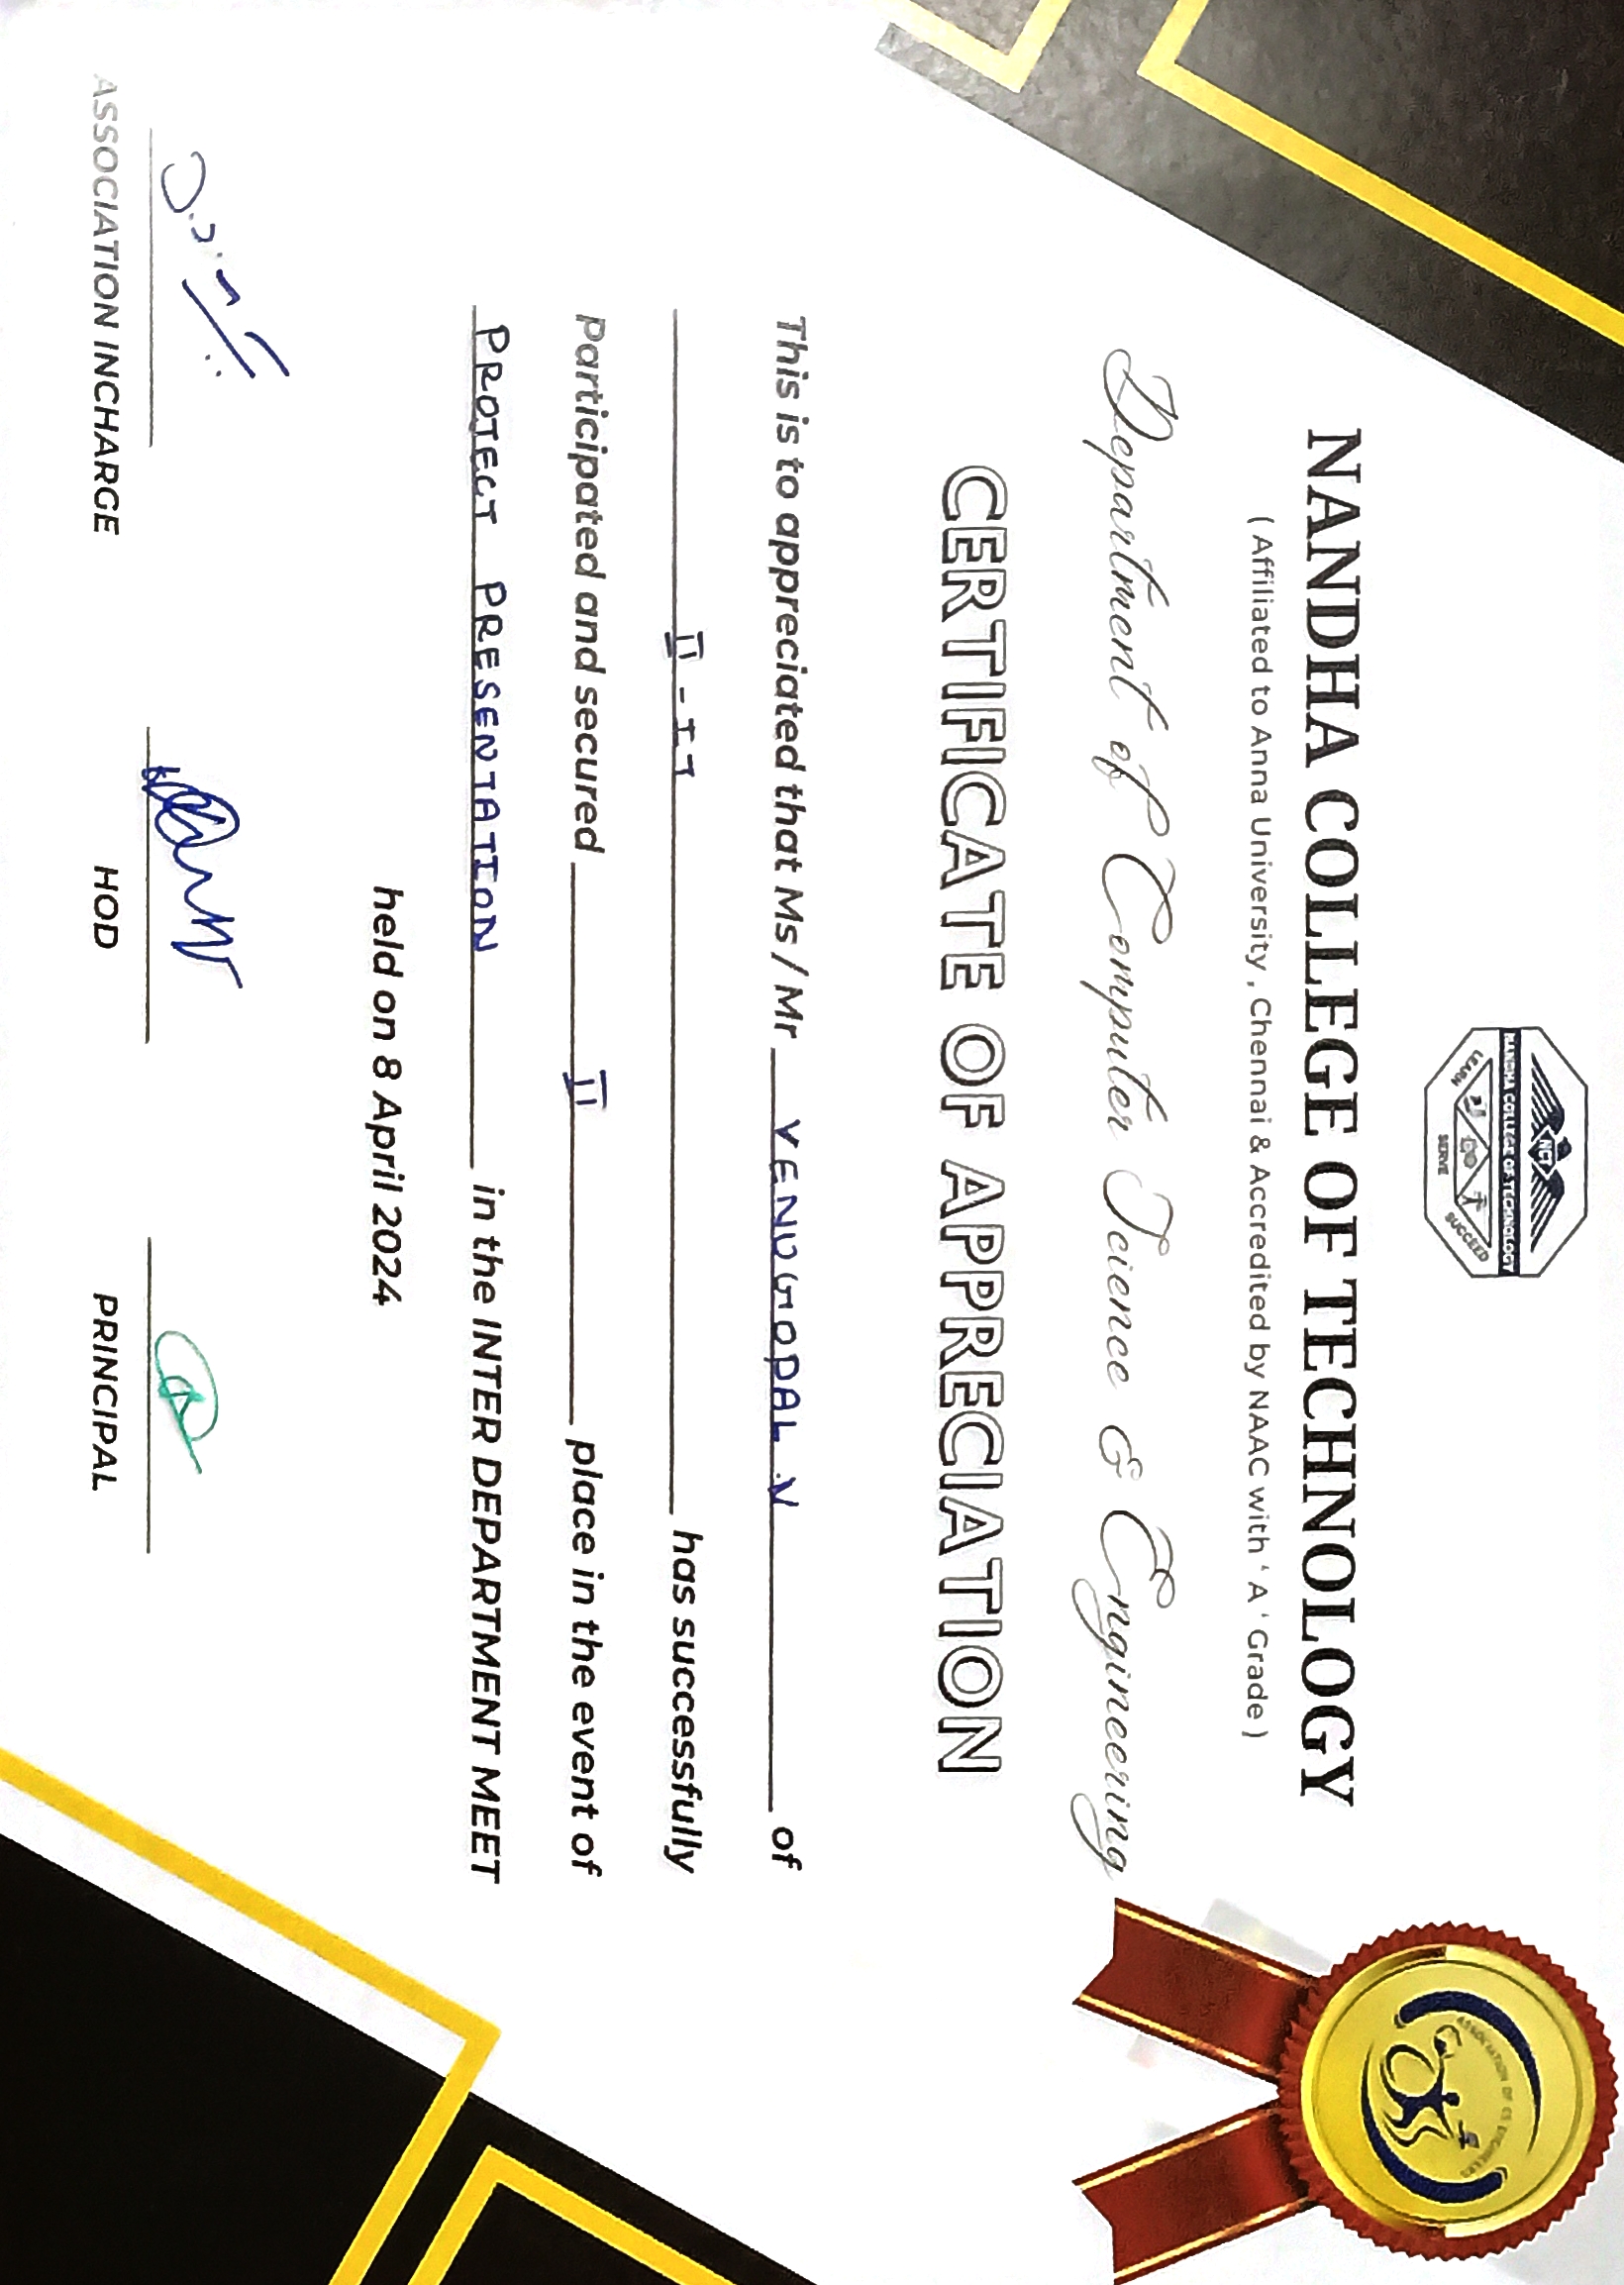 NCT
NANDHA COLLEGE OF TECHNOLOGY
LEARN SERVE SUCCEED
ASSOCIATION OF CS ENGINEERS
NANDHA COLLEGE OF TECHNOLOGY
( Affiliated to Anna University , Chennai & Accredited by NAAC with ‘ A ‘ Grade )
Department of Computer Science & Engineering
CERTIFICATE OF APPRECIATION
This is to appreciated that Ms / Mr VENUGOPAL .V of
II - IT has successfully
Participated and secured II place in the event of
PROJECT PRESENTATION in the INTER DEPARTMENT MEET
held on 8 April 2024
ASSOCIATION INCHARGE HOD PRINCIPAL